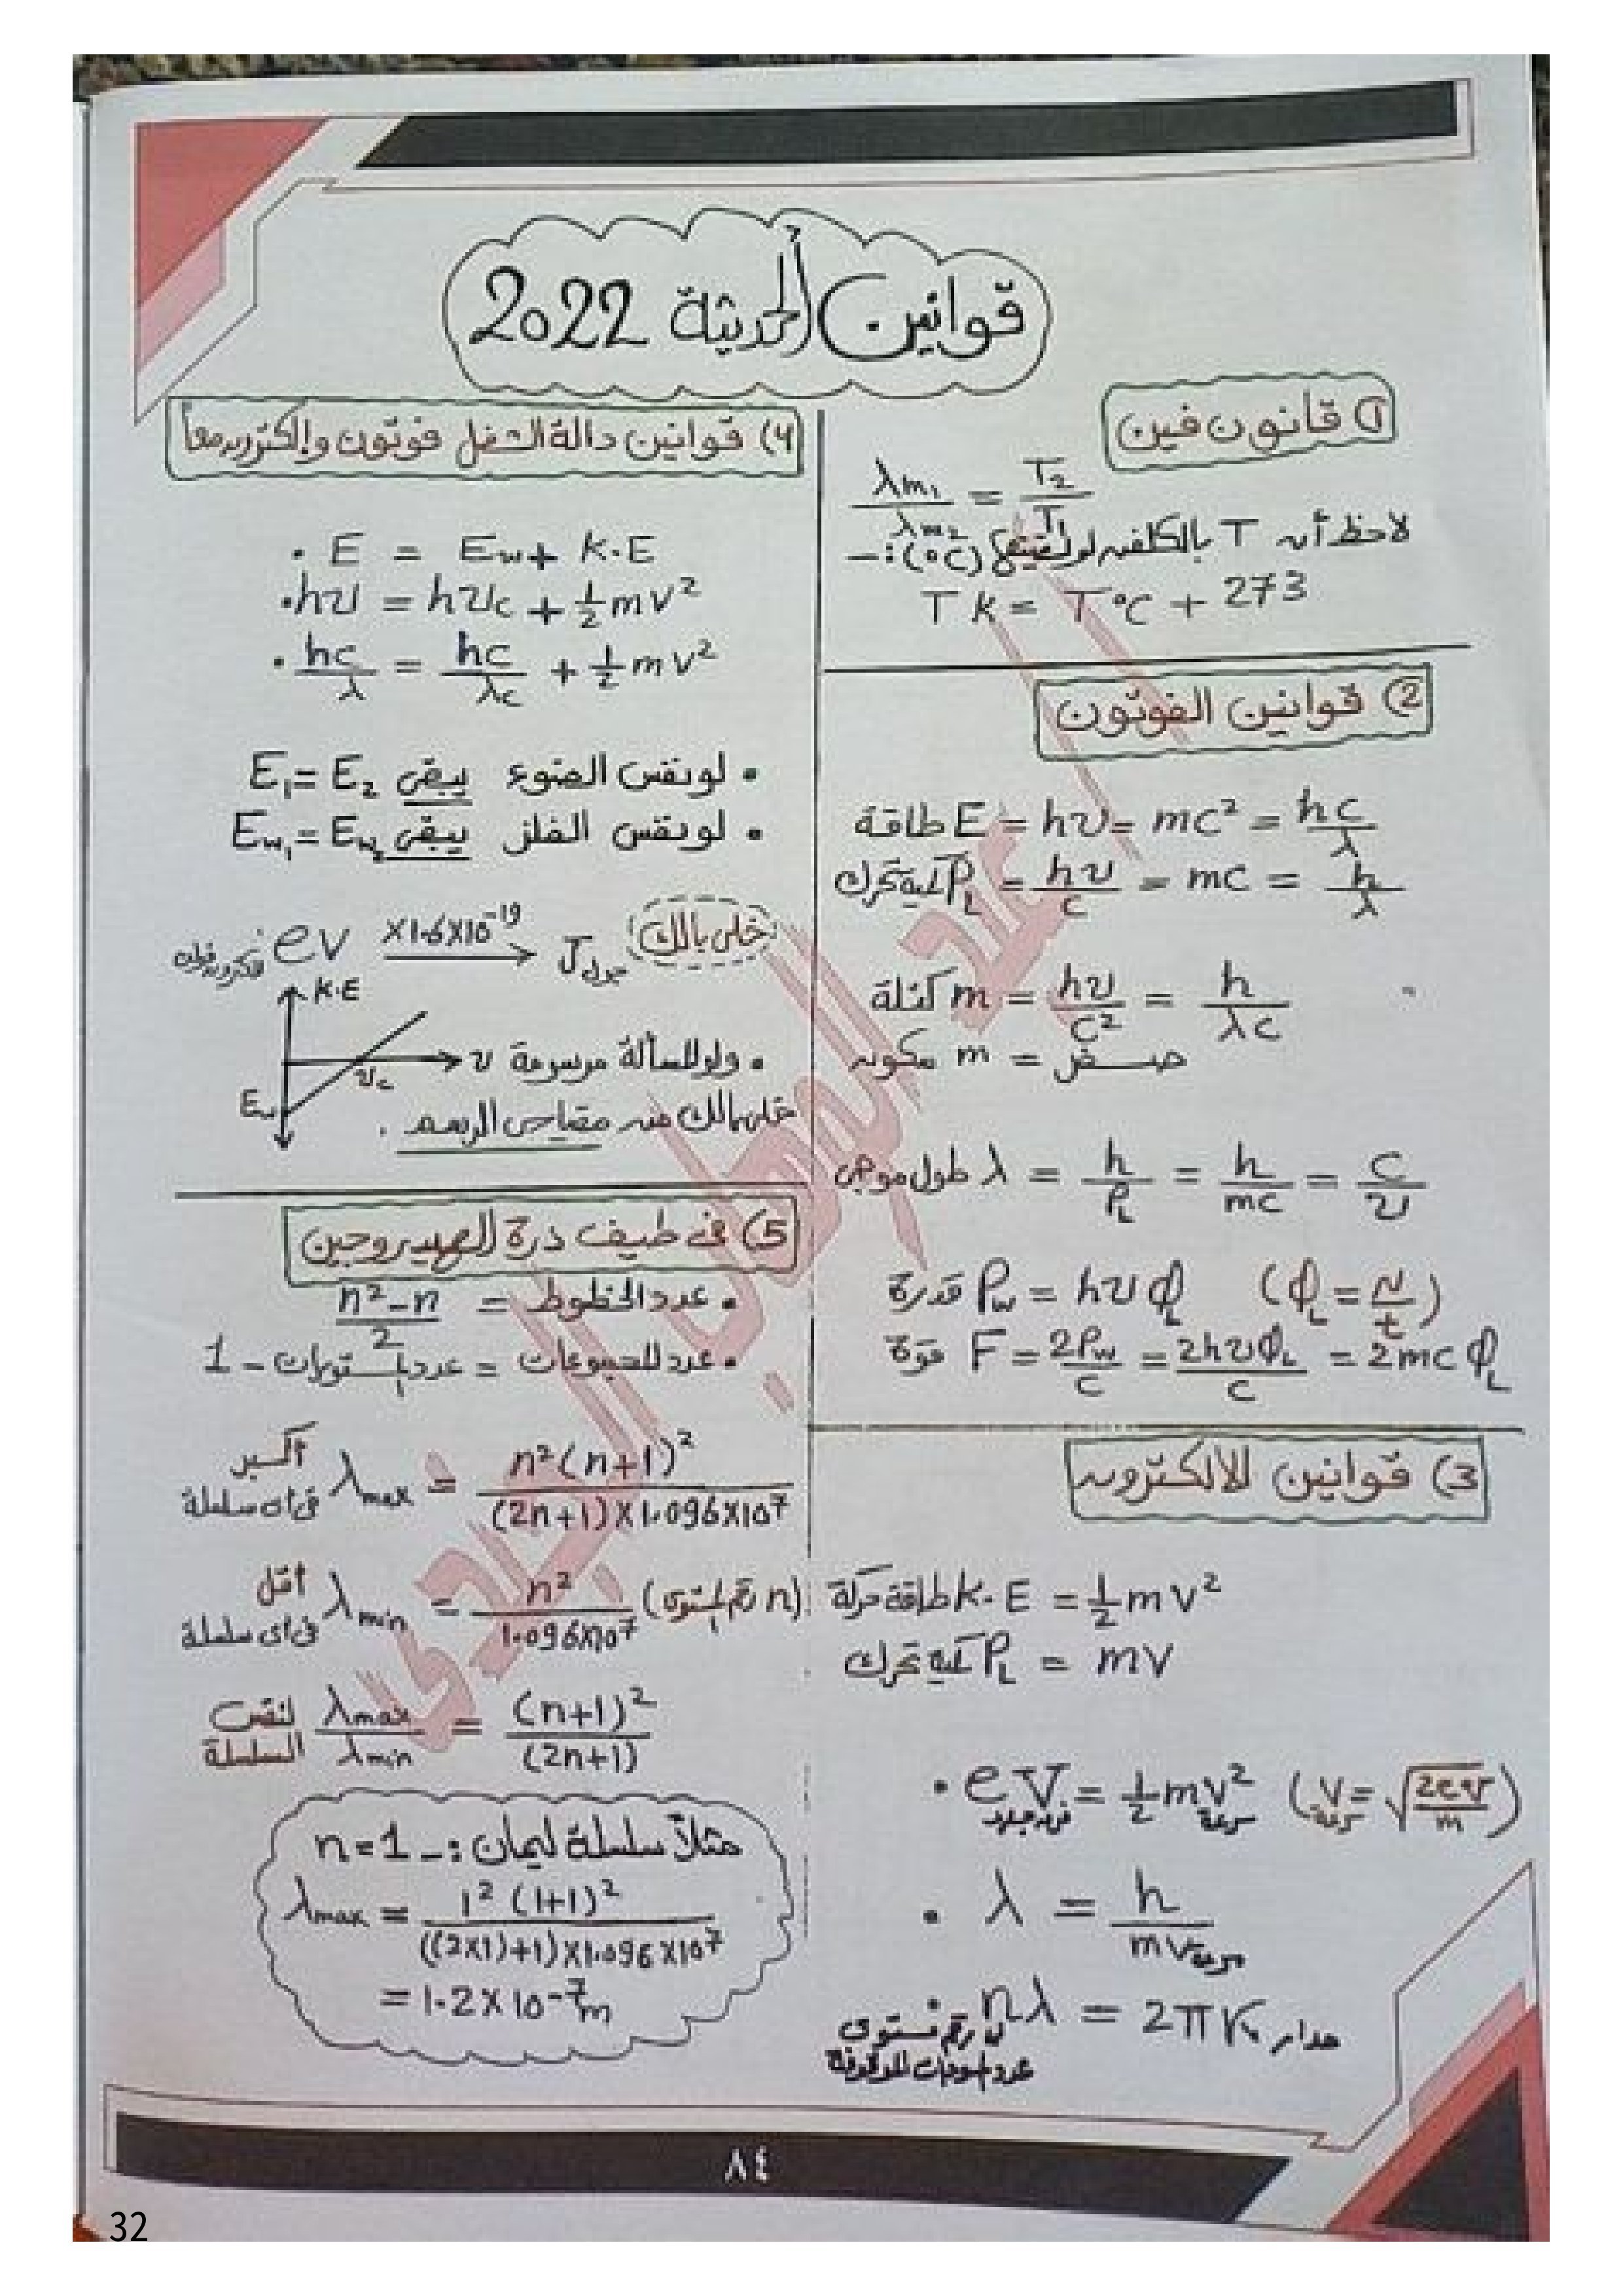 قوانين الحديثة 2022
① قانون فين
λm₁/λm₂ = T₂/T₁
لاحظ أن T بالكلفن لو
(°C) :-
T K = T°C + 273
② قوانين الفوتون
طاقة E = hυ = mc² = hc/λ
كمية تحرك P_L = hυ/c = mc = h/λ
كتلة m = hυ/c² = h/λc
سكون m = صفر
طول موجى λ = h/P_L = h/mc = c/υ
قدرة P_w = hυ ϕ_L (ϕ_L = N/t)
قوة F = 2P_w/c = 2hυϕ_L/c = 2mc ϕ_L
3) قوانين الالكترون
طاقة حركة K.E = ½ mv²
كمية تحرك P_L = mv
• eV = ½ mv² (v = √(2eV/m))
فرق جهد سرعة سرعة
• λ = h/mv سرعة
• nλ = 2πr مدار
رقم مستوى
عدد الموجات الموقوفة
4) قوانين دالة الشغل فوتون وإلكترون معاً
• E = E_w + K.E
• hυ = hυc + ½ mv²
• hc/λ = hc/λc + ½ mv²
• لو نفس الضوء يبقى E₁ = E₂
• لو نفس الفلز يبقى E_w₁ = E_w₂
خلى بالك
إلكترون فولت ev ×1.6×10⁻¹⁹ → J جول
K.E
• ولو المسألة مرسومة υ
υc
E_w
خلى بالك من مفتاح الرسم .
5) فى طيف ذرة الهيدروجين
• عدد الخطوط = n²-n/2
• عدد المجموعات = عدد المستويات - 1
أكبر λmax = n²(n+1)²/(2n+1)×1.096×10⁷
فى اى سلسلة
أقل λmin = n²/1.096×10⁷ (n رقم المستوى)
فى اى سلسلة
لنفس السلسلة λmax/λmin = (n+1)²/(2n+1)
مثلاً سلسلة ليمان :- n=1
λmax = 1²(1+1)²/((2×1)+1)×1.096×10⁷
= 1.2×10⁻⁷m
٨٤
32